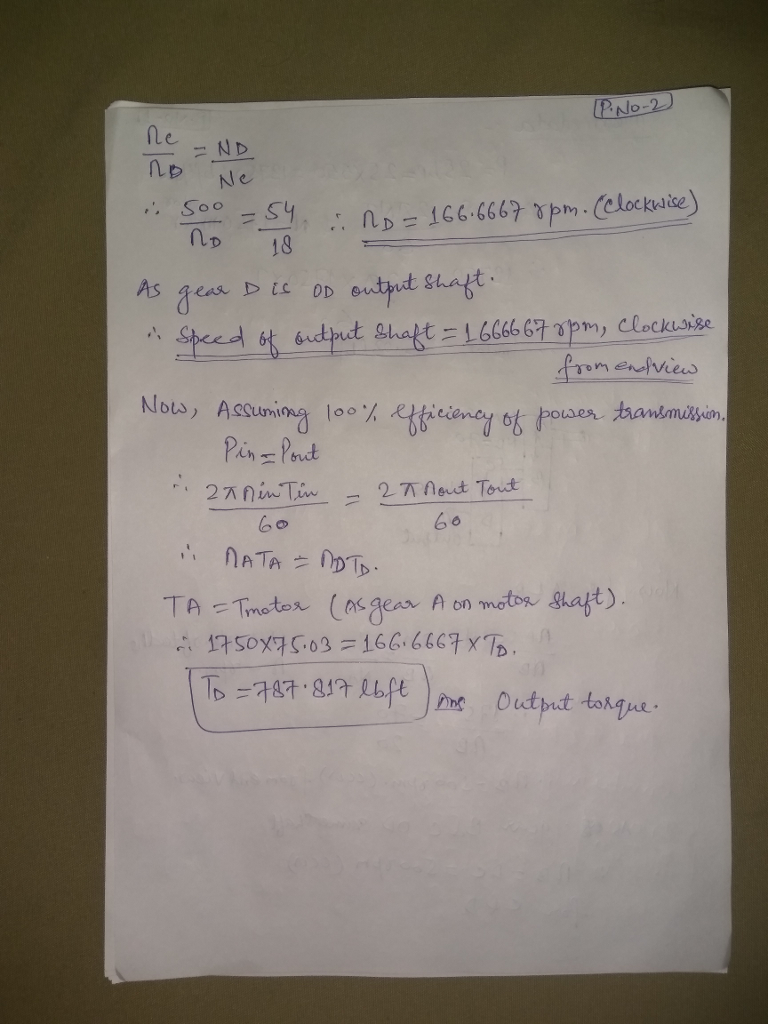 P.No-2
nc/nD = ND/Nc
∴ 500/nD = 54/18 ∴ nD = 166.6667 rpm. (Clockwise)
As gear D is OD output shaft.
∴ Speed of output shaft = 1666667 rpm, Clockwise
from endview
Now, Assuming 100% efficiency of power transmission.
Pin = Pout
∴ 2π nin Tin/60 = 2π nout Tout/60
∴ nATA = nDTD.
TA = Tmotor (as gear A on motor shaft).
∴ 1750×75.03 = 166.6667 × TD.
TD = 787.817 lbft Ans Output torque.